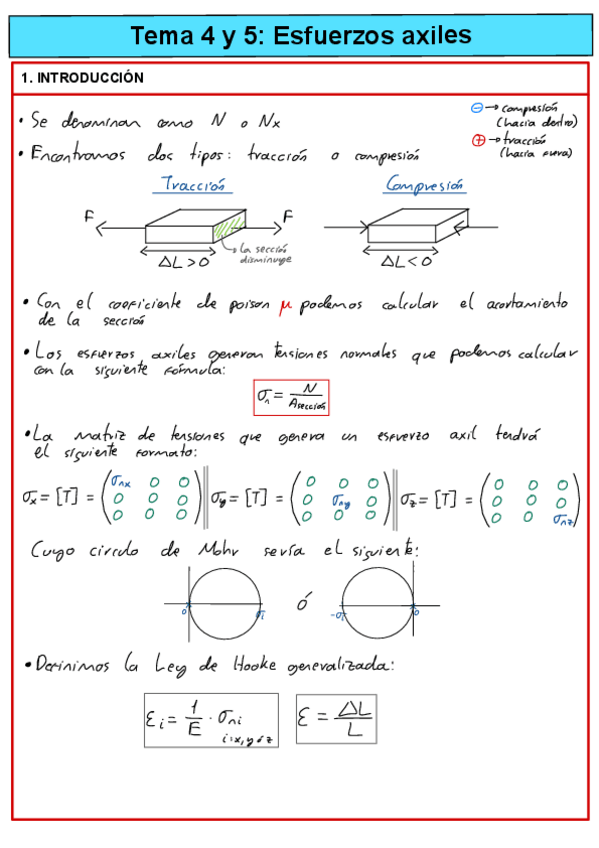 Tema 4 y 5: Esfuerzos axiles
1. INTRODUCCIÓN
• Se denominan como N o Nx
⊖ → compresión
(hacia dentro)
⊕ → tracción
(hacia fuera)
• Encontramos dos tipos: tracción o compresión
Tracción
Compresión
F
F
La sección
disminuye
ΔL > 0
ΔL < 0
• Con el coeficiente de poison μ podemos calcular el acortamiento
de la sección
• Los esfuerzos axiles generan tensiones normales que podemos calcular
con la siguiente fórmula:
σn = N / Asección
• La matriz de tensiones que genera un esfuerzo axil tendrá
el siguiente formato:
σx = [T] = (σnx 0 0 / 0 0 0 / 0 0 0) || σy = [T] = (0 0 0 / 0 σny 0 / 0 0 0) || σz = [T] = (0 0 0 / 0 0 0 / 0 0 σnz)
Cuyo circulo de Mohr sería el siguiente:
0 σi ó -σi 0
• Definimos la Ley de Hooke generalizada:
εi = 1/E · σni
i=x,y ó z
ε = ΔL / L